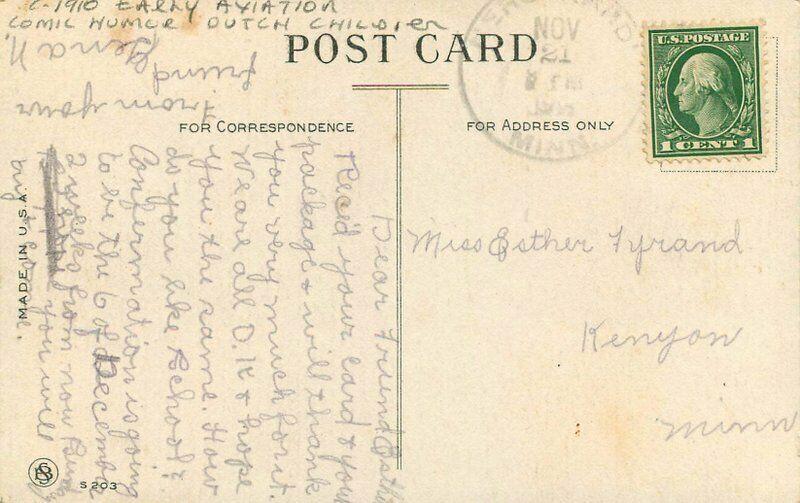 C-1910 EARLY AVIATION
COMIC HUMOR DUTCH CHILDREN
POST CARD
NOV
21
MINN.
U.S. POSTAGE
1 CENT 1
FOR CORRESPONDENCE
FOR ADDRESS ONLY
Dear Friend Esther
Rec'd your card & your
package & will thank
you very much for it.
We are all O.K & hope
you the same. How
do you like School?
Confermation is going
to be the 6 of December
2 weeks from now Sun
you will
try & come.
From your
friend
Miss Esther Tyrand
Kenyon
Minn
MADE IN U.S.A.
S 203